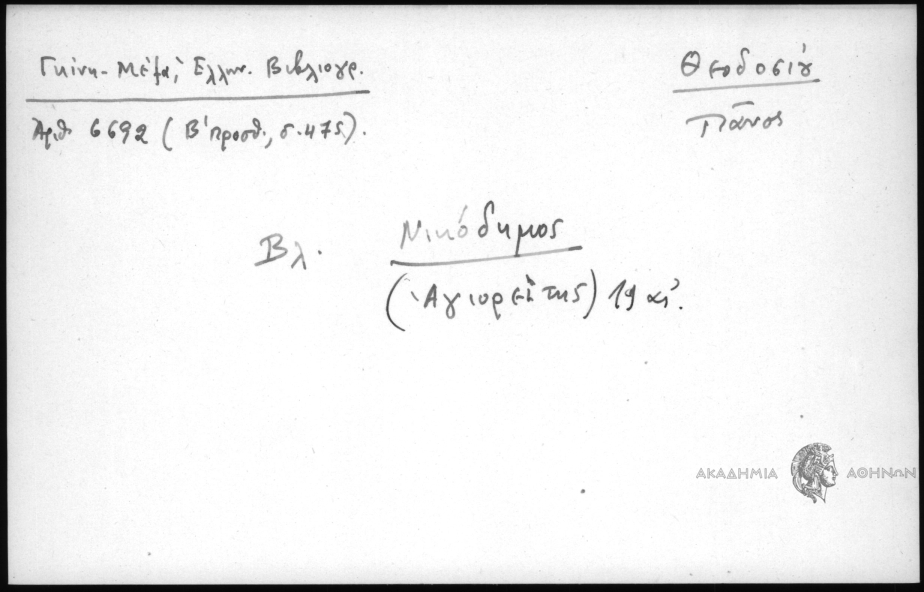 Γκίνη - Μέξα, Ἑλλην. Βιβλιογρ.
Ἀριθ. 6692 (Β' προσθ., σ. 475).
Θεοδοσίου
Πᾶνος
Βλ. Νικόδημος
(Ἁγιορείτης) 19 αἰ.
ΑΚΑΔΗΜΙΑ ΑΘΗΝΩΝ